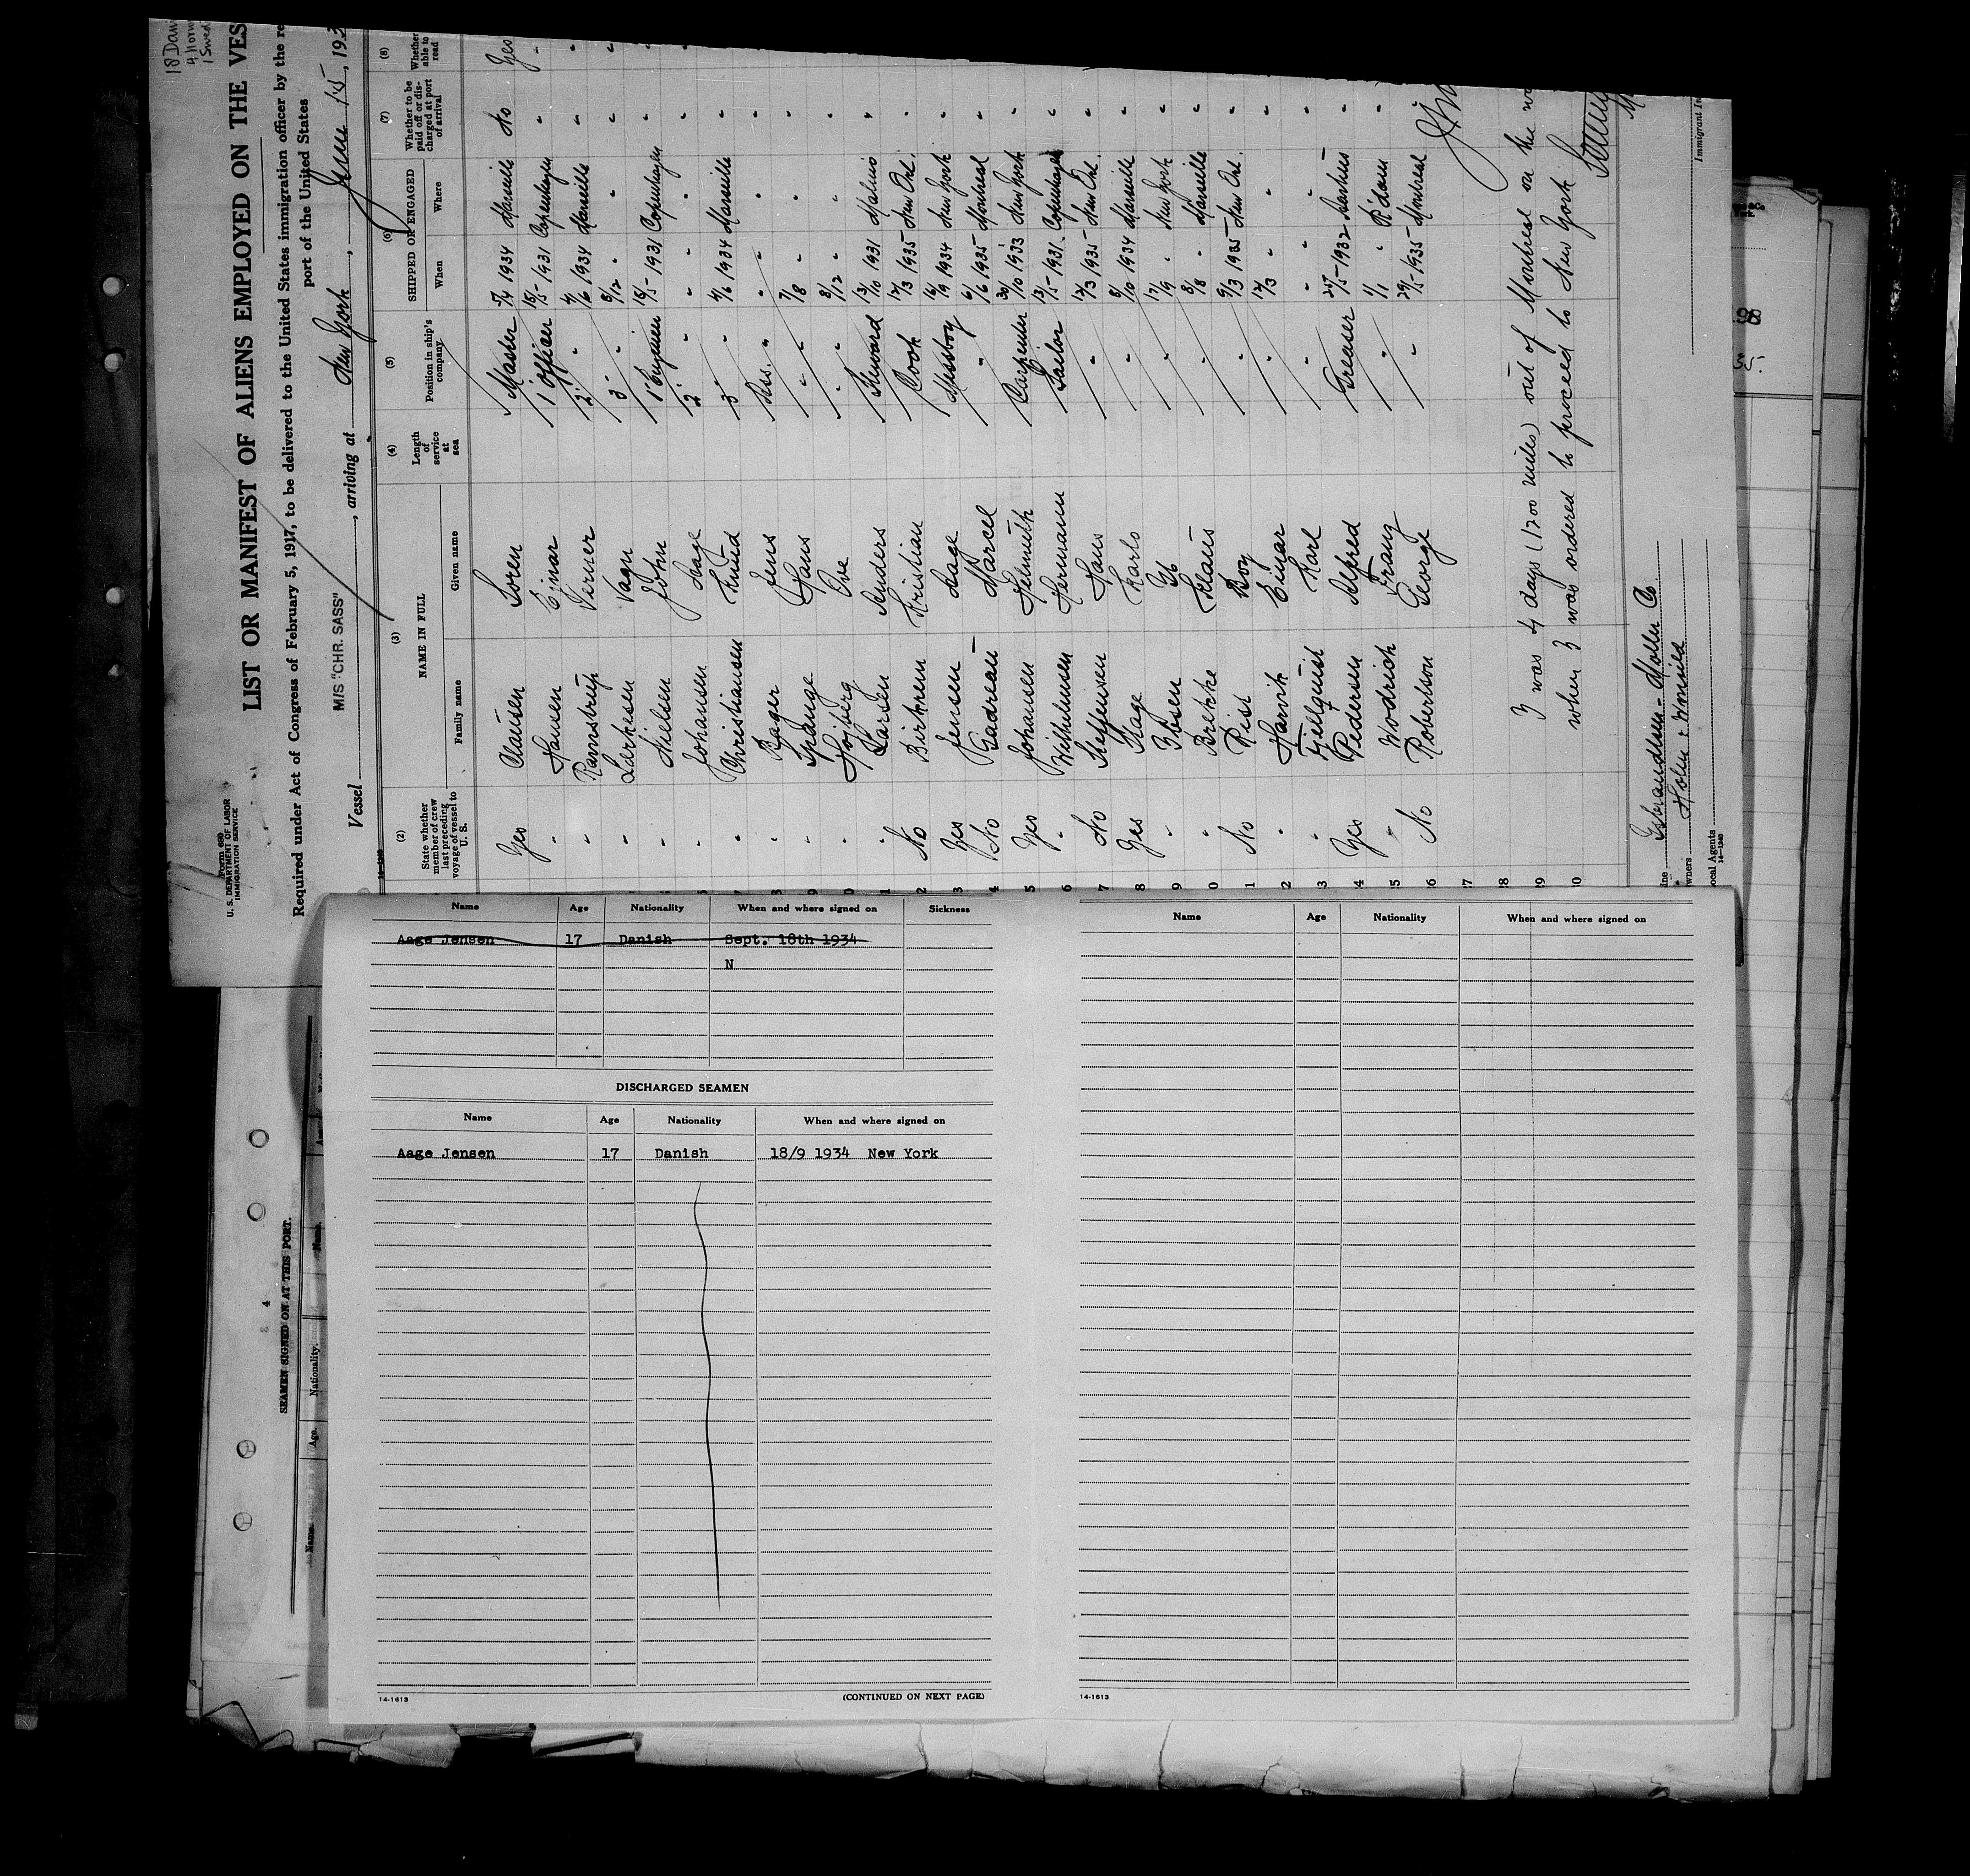 18 Dan
4 Norw
1 Swed
Form 680
U. S. DEPARTMENT OF LABOR
IMMIGRATION SERVICE
LIST OR MANIFEST OF ALIENS EMPLOYED ON THE VES
Required under Act of Congress of February 5, 1917, to be delivered to the United States immigration officer by the re
port of the United States
Vessel M/S "CHR. SASS", arriving at New York, June 15, 193
14—1240
(2) (3) (4) (5) (6) (7) (8)
State whether member of crew last preceding voyage of vessel to U. S.
NAME IN FULL
Family name Given name
Length of service at sea
Position in ship's company
SHIPPED OR ENGAGED
When Where
Whether to be paid off or discharged at port of arrival
Whether able to read
Yes Clausen Soren Master 1934 Marseille No Yes
" Hansen Ejnar 1 Officer 15/5 1931 Copenhagen " "
" Ramstrup Verner 2 " 4/6 1934 Marseille " "
" Lerkesen Vagn 3 " 8/12 " " "
" Nielsen John 1 Engineer 15/5 1931 Copenhagen " "
" Johansen Aage 2 " " " " "
" Christiansen Knud 3 " 4/6 1934 Marseille "
" Bager Jens Ass. " " " "
" Spange Hans " 7/8 " "
" Hojberg Ove " 8/12 " "
" Larsen Anders Steward 13/10 1931 "
No Birkrem Kristian Cook 12/3 1935 New Orl. "
Yes Jensen Aage Messboy 1934 New York "
No Gadreau Marcel " 6/6 1935 Montreal "
Yes Johansen Helmuth Carpenter 30/10 1933 New York "
" Wilhelmsen Hermann Sailor 13/5 1931 Copenhagen "
No Steffensen Hans " 12/3 1935 New Orl. "
Yes Flage Karlo " 5/10 1934 Marseille "
" Ibsen Ib " 17/9 " New York "
" Bretke Klaus " 8/8 " Marseille "
No Riss Boy " 9/3 1935 New Orl. "
" Harvik Einar " 12/3 " " "
" Fjellquist Karl " " " "
Yes Pedersen Alfred Greaser 25/5 1932 "
" Wodrich Franz " 1/1 " R'dam "
No Robertson George " 29/5 1935 Montreal "
I was 4 days (1200 miles) out of Montreal on the wa
when I was ordered to proceed to New York
Immigrant In
ine Isbrandtsen-Moller Co.
wners
ocal Agents
14—1240
.98
35.
4
SEAMEN SIGNED ON AT THIS PORT.
Name. Age. Nationality.
Name Age Nationality When and where signed on Sickness
Aage Jensen 17 Danish Sept. 18th 1934
N
DISCHARGED SEAMEN
Name Age Nationality When and where signed on
Aage Jensen 17 Danish 18/9 1934 New York
14-1613 (CONTINUED ON NEXT PAGE)
Name Age Nationality When and where signed on
14-1613